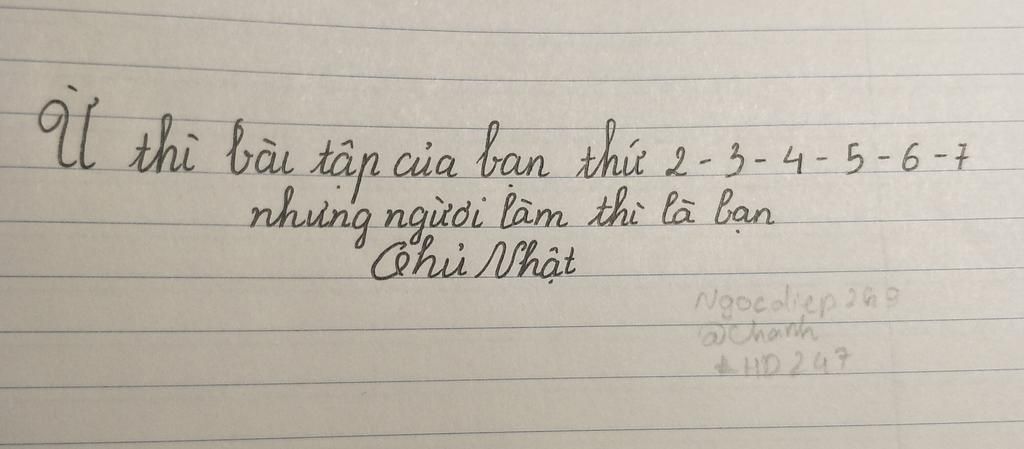 Ừ thì bài tập của bạn thứ 2-3-4-5-6-7
nhưng người làm thì là bạn
Chủ Nhật
Ngocdiep249
@Chanh
HD247